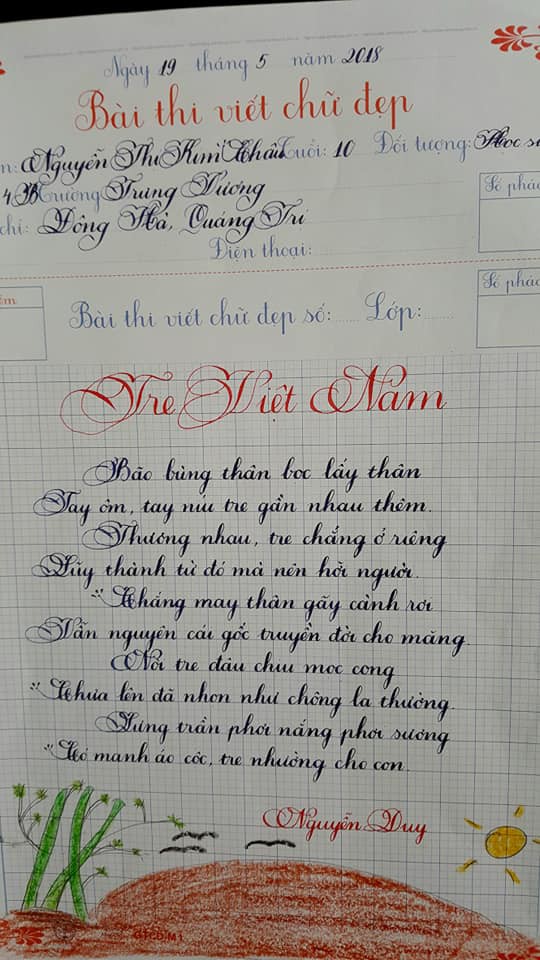 Ngày 19 tháng 5 năm 2018
Bài thi viết chữ đẹp
n: Nguyễn Thị Kim Châu Tuổi: 10 Đối tượng: Học si
4B Trường Trưng Vương
chỉ: Đông Hà, Quảng Trị
Điện thoại:
Số phác
Bài thi viết chữ đẹp số: Lớp:
Số phác
Tre Việt Nam
Bão bùng thân bọc lấy thân
Tay ôm, tay níu tre gần nhau thêm.
Thương nhau, tre chẳng ở riêng
Lũy thành từ đó mà nên hỡi người.
Chẳng may thân gãy cành rơi
Vẫn nguyên cái gốc truyền đời cho măng.
Nòi tre đâu chịu mọc cong
Chưa lên đã nhọn như chông lạ thường.
Lưng trần phơi nắng phơi sương
Có manh áo cộc, tre nhường cho con.
Nguyễn Duy